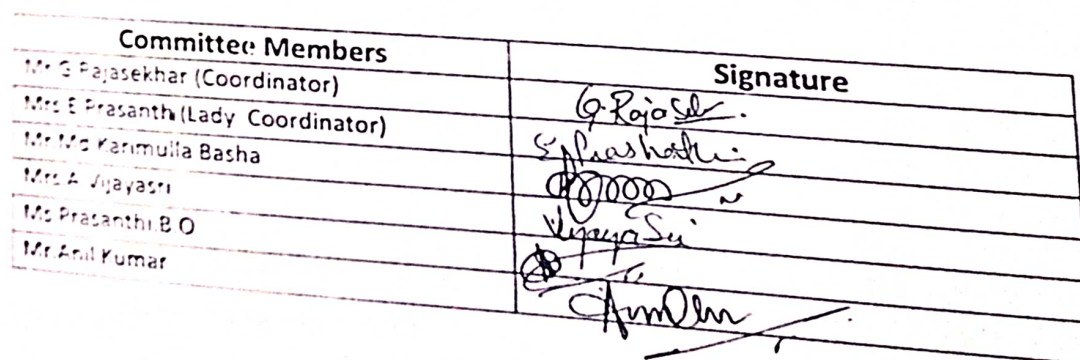 Committee Members Signature
Mr G Rajasekhar (Coordinator) G. Raja
Mrs E Prasanth (Lady Coordinator) E. Prashanthi
Mr Md Karimulla Basha
Mrs A Vijayasri VijayaSri
Ms Prasanthi.B.O
Mr.Anil Kumar